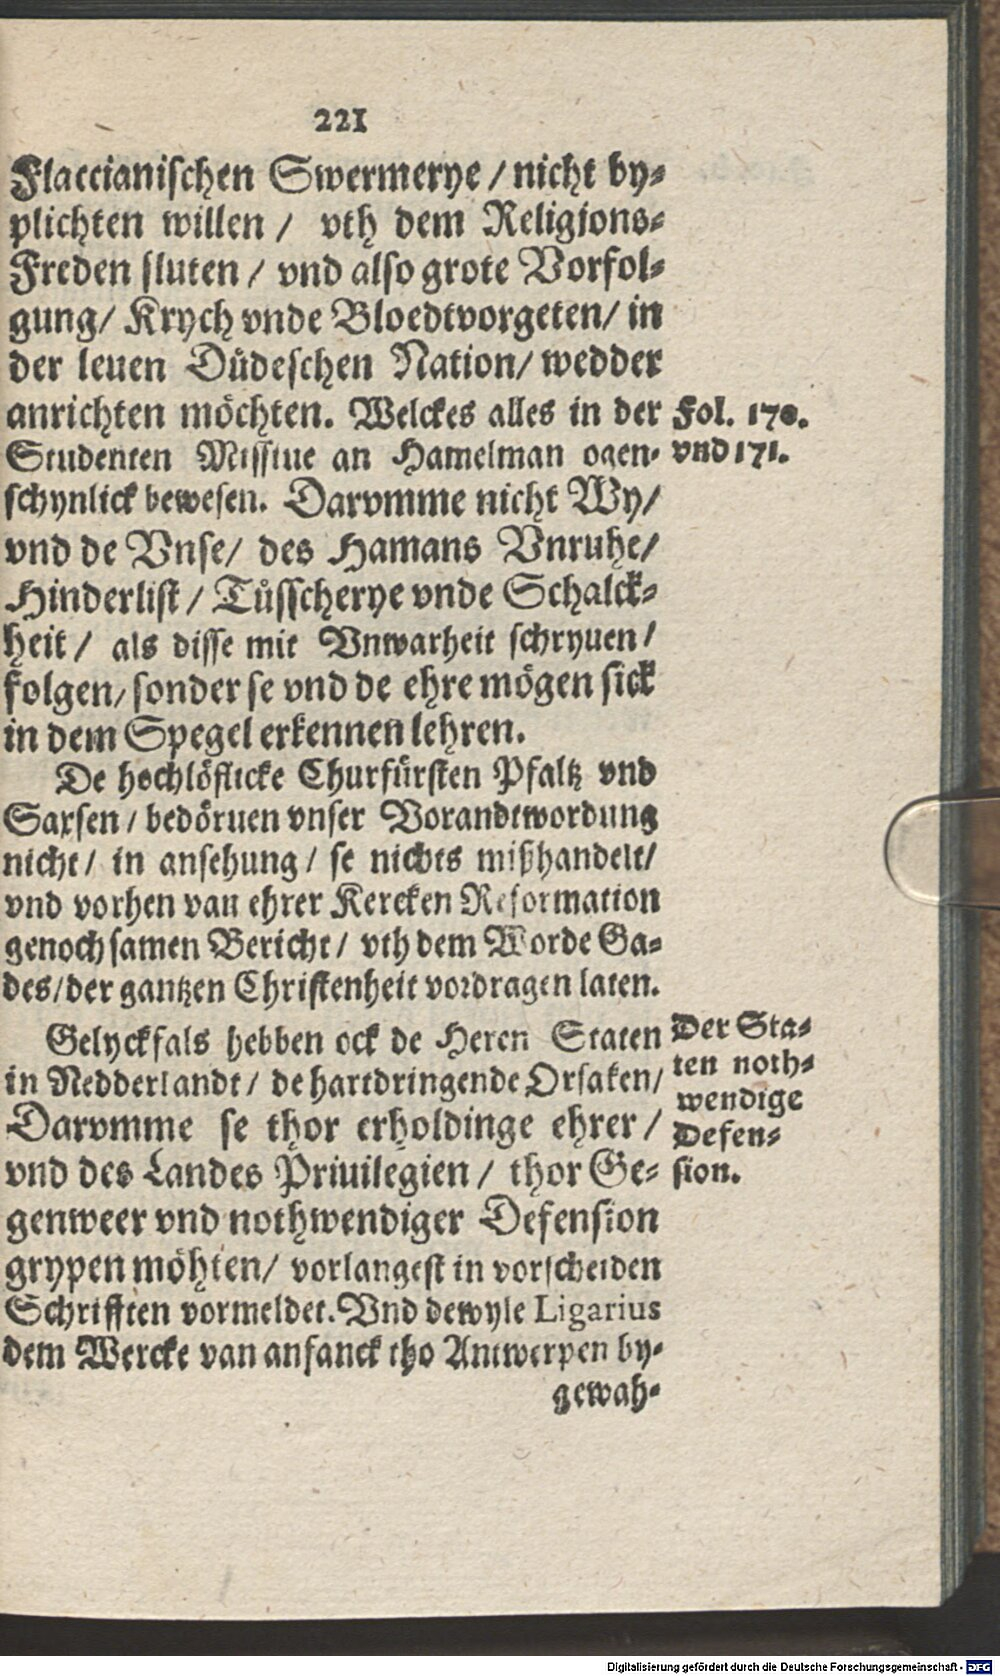 221
Flaccianischen Swermerye / nicht by-
plichten willen / vth dem Religions-
Freden sluten / vnd also grote Vorfol-
gung/ Krych vnde Bloedtvorgeten/ in
der leuen Důdeschen Nation/ wedder
anrichten möchten. Welckes alles in der
Fol. 170.
Studenten Missiue an Hamelman ogen-
vnd 171.
schynlick bewesen. Darvmme nicht Wy/
vnd de Vnse/ des Hamans Vnruhe/
Hinderlist / Tůsscherye vnde Schalck-
heit / als disse mit Vnwarheit schryuen /
folgen/ sonder se vnd de ehre mögen sick
in dem Spegel erkennen lehren.
De hochlöflicke Churfürsten Pfaltz vnd
Saxsen / bedöruen vnser Vorandtwordung
nicht / in ansehung / se nichts mißhandelt/
vnd vorhen van ehrer Kercken Reformation
genochsamen Bericht / vth dem Worde Ga-
des/ der gantzen Christenheit vordragen laten.
Gelyckfals hebben ock de Heren Staten
in Nedderlandt / de hartdringende Orsaken/
Darvmme se thor erholdinge ehrer /
vnd des Landes Priuilegien / thor Ge-
genweer vnd nothwendiger Defension
grypen möhten/ vorlangest in vorscheiden
Schrifften vormeldet. Vnd dewyle Ligarius
dem Wercke van anfanck tho Antwerpen by-
gewah-
Der Sta-
ten noth-
wendige
Defen-
sion.
Digitalisierung gefördert durch die Deutsche Forschungsgemeinschaft - DFG